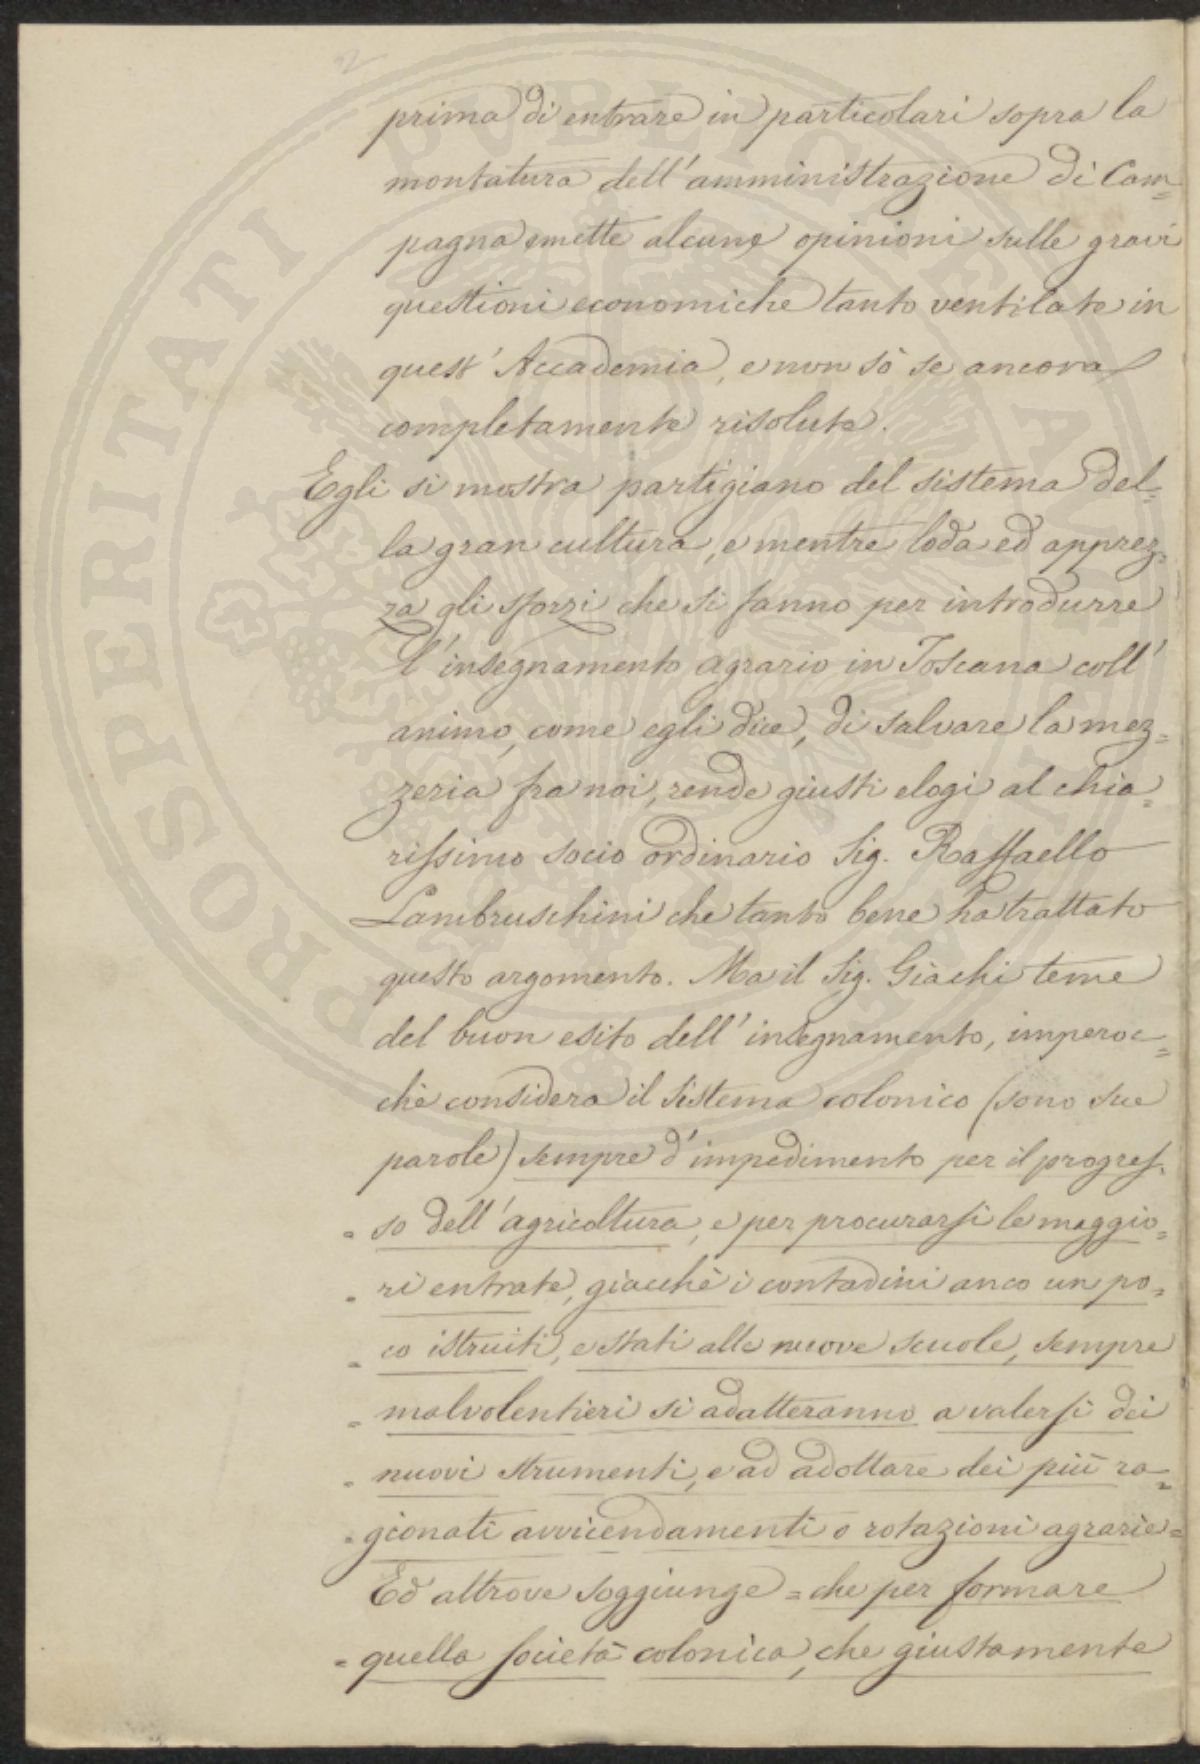 2
PROSPERITATI PUBLICAE AUGENDAE
prima di entrare in particolari sopra la
montatura dell'amministrazione di Cam=
pagna emette alcune opinioni sulle gravi
questioni economiche tanto ventilate in
quest'Accademia, e non sò se ancora
completamente risolute.
Egli si mostra partigiano del sistema del=
la gran cultura, e mentre loda ed apprez=
za gli sforzi che si fanno per introdurre
l'insegnamento agrario in Toscana coll'
animo, come egli dice, di salvare la mez=
zeria fra noi, rende giusti elogi al chia=
rissimo socio ordinario Sig. Raffaello
Lambruschini che tanto bene ha trattato
questo argomento. Ma il Sig. Giachi teme
del buon esito dell'insegnamento, imperoc=
chè considera il sistema colonico (sono sue
parole) sempre d'impedimento per il progres=
= so dell'agricoltura, e per procurarsi le maggio=
= ri entrate, giacchè i contadini anco un po=
= co istruiti, e stati alle nuove scuole, sempre
= malvolentieri si adatteranno a valersi dei
= nuovi strumenti, e ad adottare dei più ra=
= gionati avvicendamenti o rotazioni agrarie=
Ed altrove soggiunge = che per formare
= quella società colonica, che giustamente